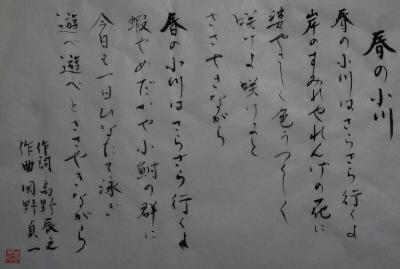 春の小川
春の小川はさらさら行くよ
岸のすみれやれんげの花に
姿やさしく色うつくしく
咲けよ咲けよと
ささやきながら
春の小川はさらさら行くよ
蝦やめだかや小鮒の群に
今日も一日ひなたで泳ぎ
遊べ遊べとささやきながら
作詞 高野辰之
作曲 岡野貞一